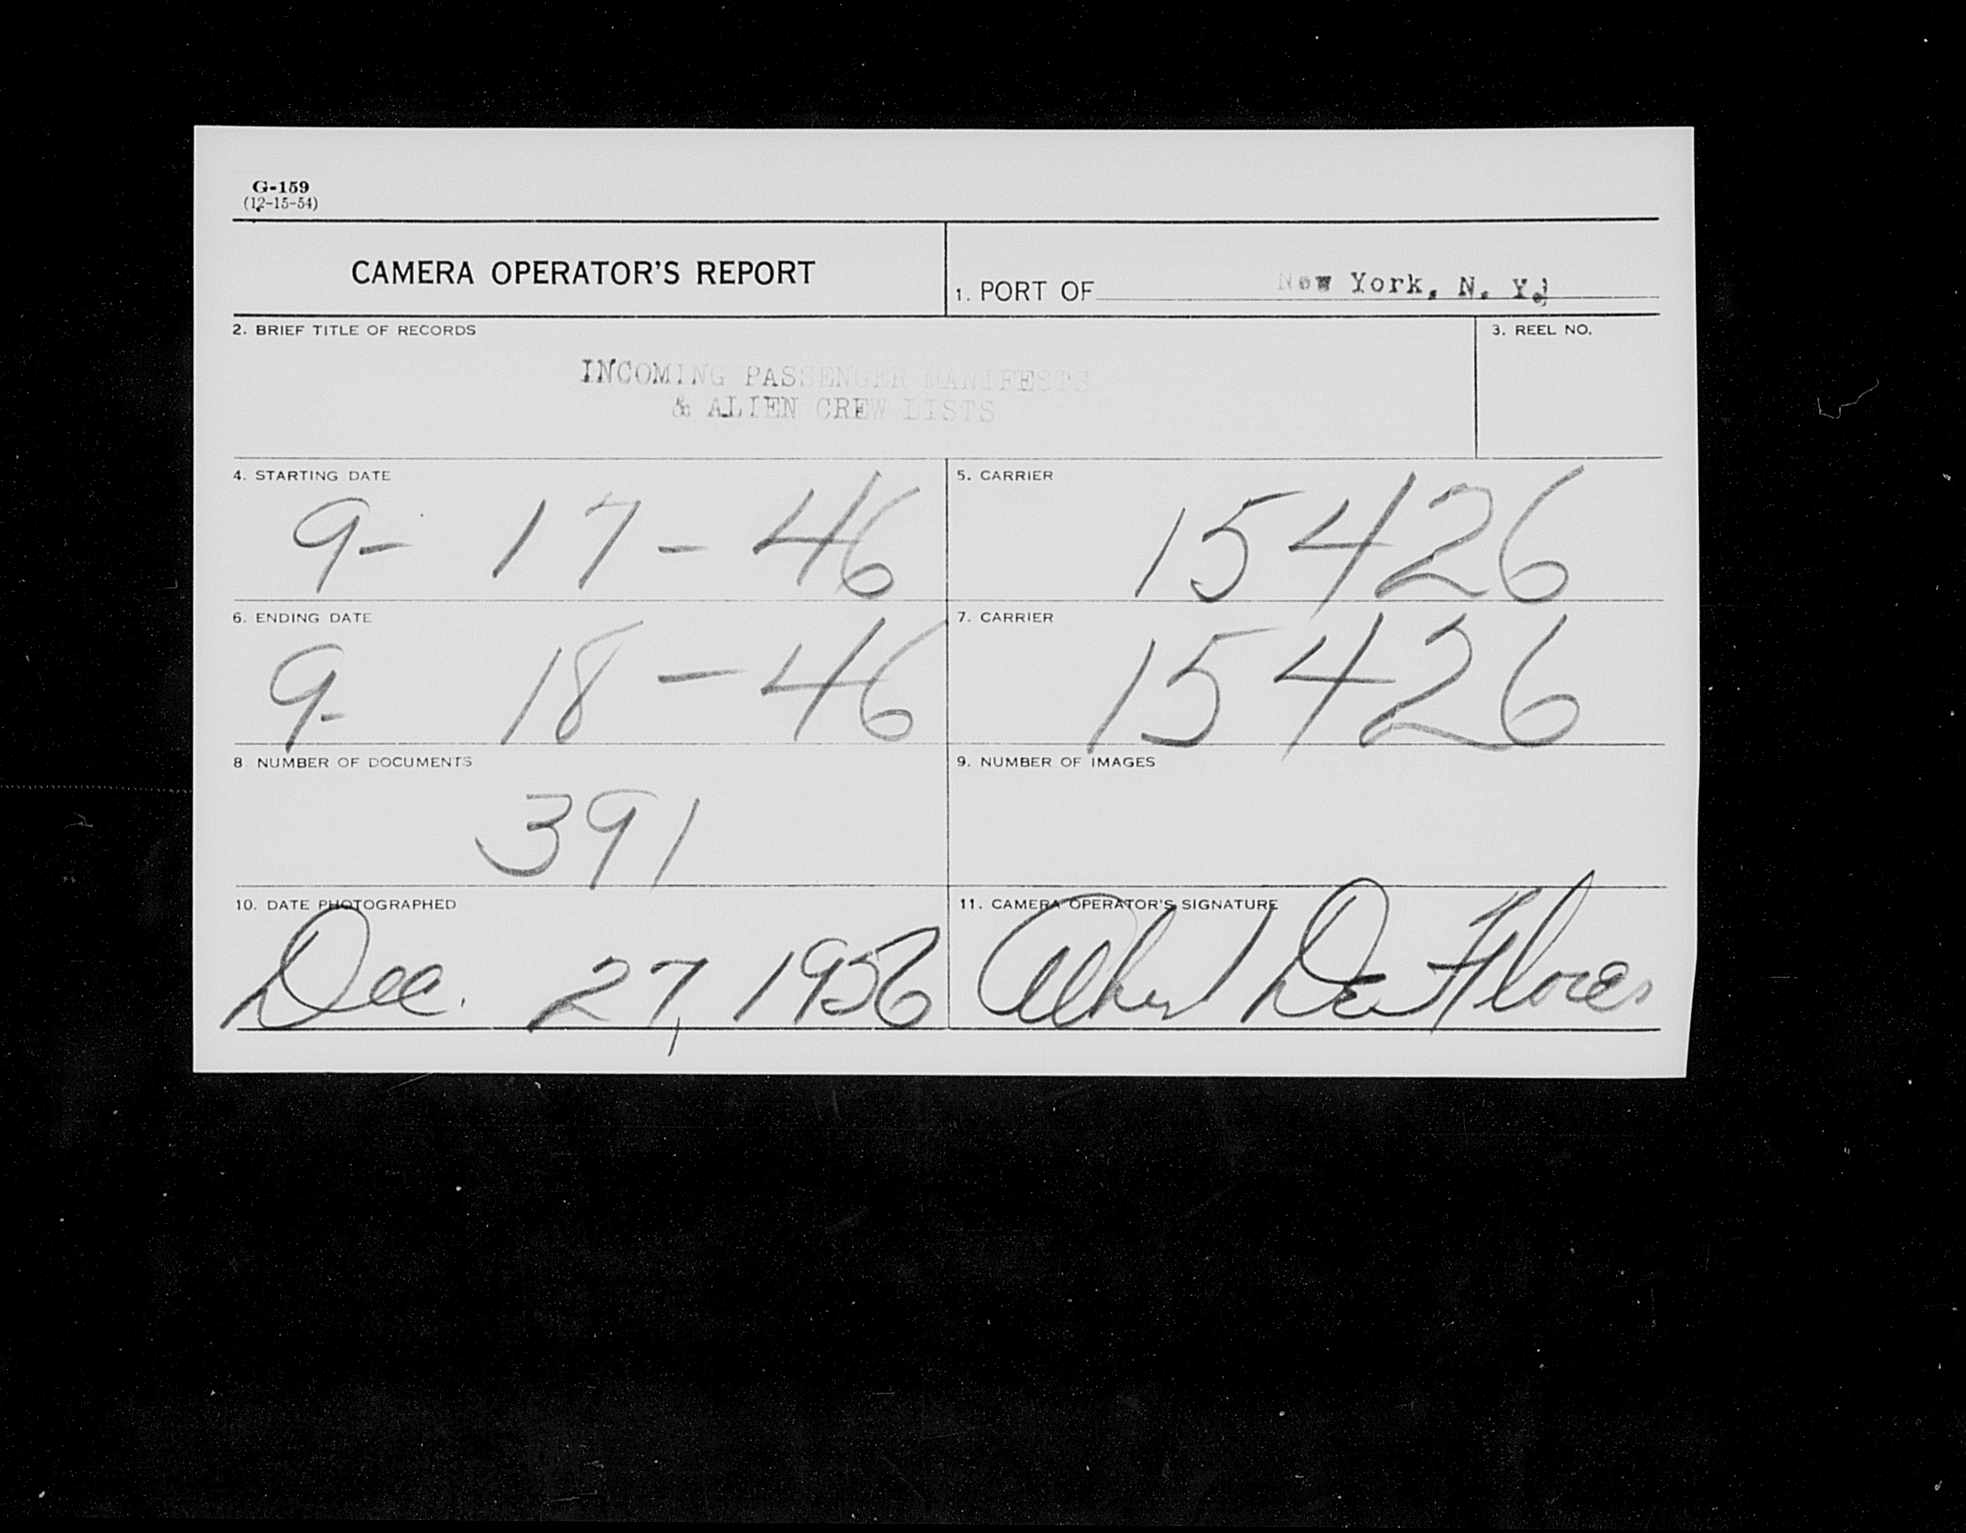 G-159
(12-15-54)
CAMERA OPERATOR'S REPORT
1. PORT OF New York, N. Y.
2. BRIEF TITLE OF RECORDS
3. REEL NO.
INCOMING PASSENGER MANIFESTS
& ALIEN CREW LISTS
4. STARTING DATE
9- 17-46
5. CARRIER
15426
6. ENDING DATE
9- 18-46
7. CARRIER
15426
8 NUMBER OF DOCUMENTS
391
9. NUMBER OF IMAGES
10. DATE PHOTOGRAPHED
Dec. 27, 1956
11. CAMERA OPERATOR'S SIGNATURE
Albert De Flores